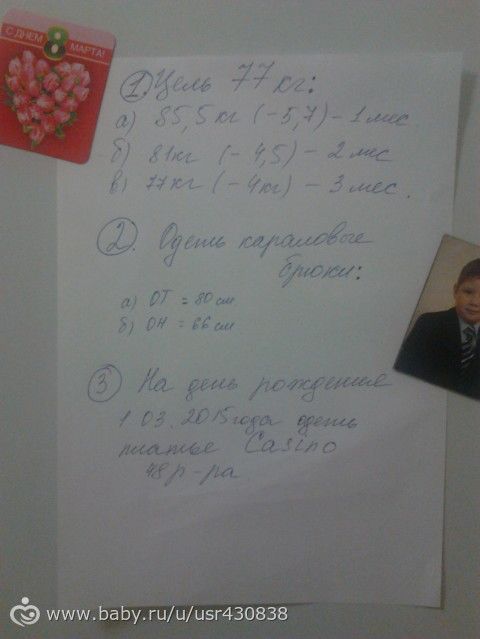 С ДНЕМ
8
МАРТА!
1. Цель 77 кг:
а) 85,5 кг (-5,7) - 1 мес.
б) 81 кг (-4,5) - 2 мес
в) 77 кг (-4 кг) - 3 мес.
2. Одеть караловые
брюки:
а) ОТ = 80 см
б) ОН = 66 см
3 На день рождения
1.03.2015 года одеть
платье Casino
48 р-ра
www.baby.ru/u/usr430838